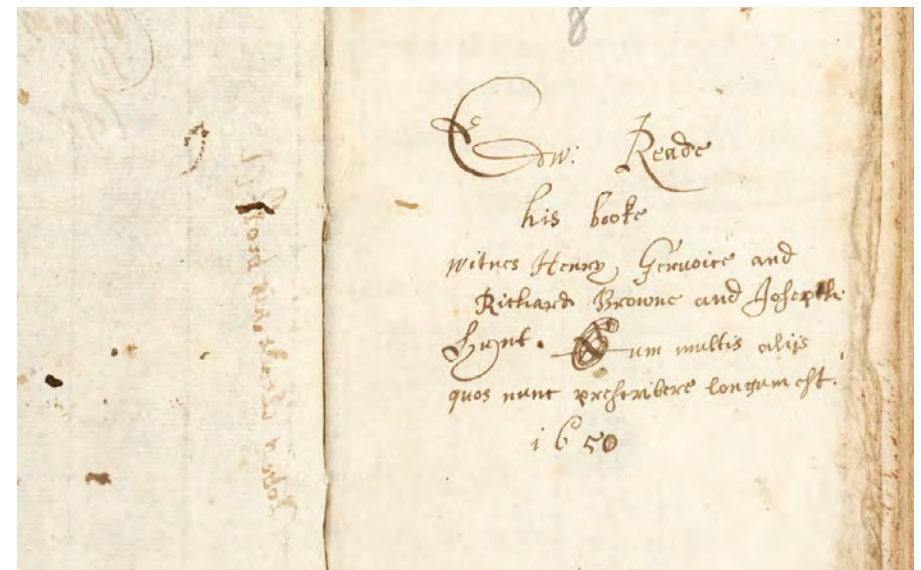 8
Edw: Reade
his booke
witnes Henry Gervoice and
Richard Browne and Joseph
Hunt. Cum multis alijs
quos nunc prescribere longum est.
1650